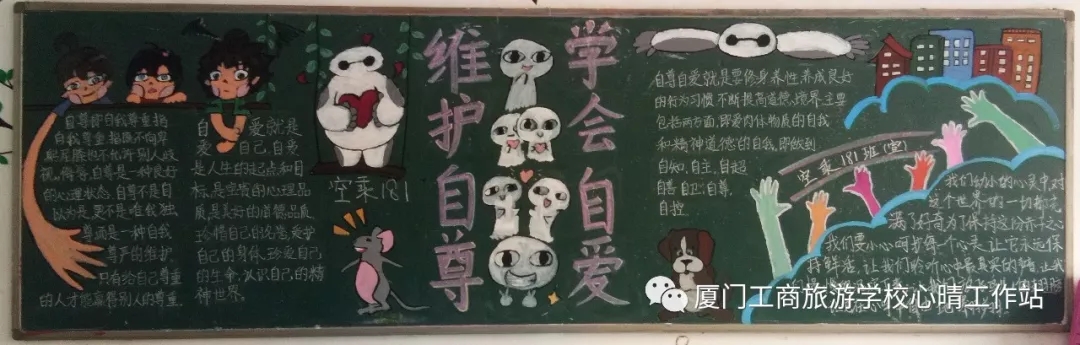 自尊即自我尊重指
自我尊重指既不向卑
躬屈膝也不允许别人歧
视、侮辱自尊是一种良好
的心理状态.自尊不是自
以为是.更不是唯我独
尊而是一种自我
尊严的维护.
只有给自己尊重
的人才能赢得别人的尊重.
自爱就是
爱自己,自爱
是人生的起点和目
标,是宝贵的心理品
质是美好的道德品质
珍惜自己的名誉,爱护
自己的身体,珍爱自己
的生命,认识自己的精
神世界.
空乘181
维护自尊
学会自爱
自尊自爱就是要修身养性,养成良好
的行为习惯,不断提高道德境界.主要
包括两方面,即爱肉体物质的自我
和精神道德的自我,即做到
自知,自主,自超
自卫自尊.
自控
空乘181班(宣)
我们幼小的心灵中,对
这个世界的一切都充
满了好奇为了保持这份赤子之心
我们要小心呵步每个心灵,让它永远保
持鲜活,让我们聆听心中最真实的声音,让我
厦门工商旅游学校心晴工作站